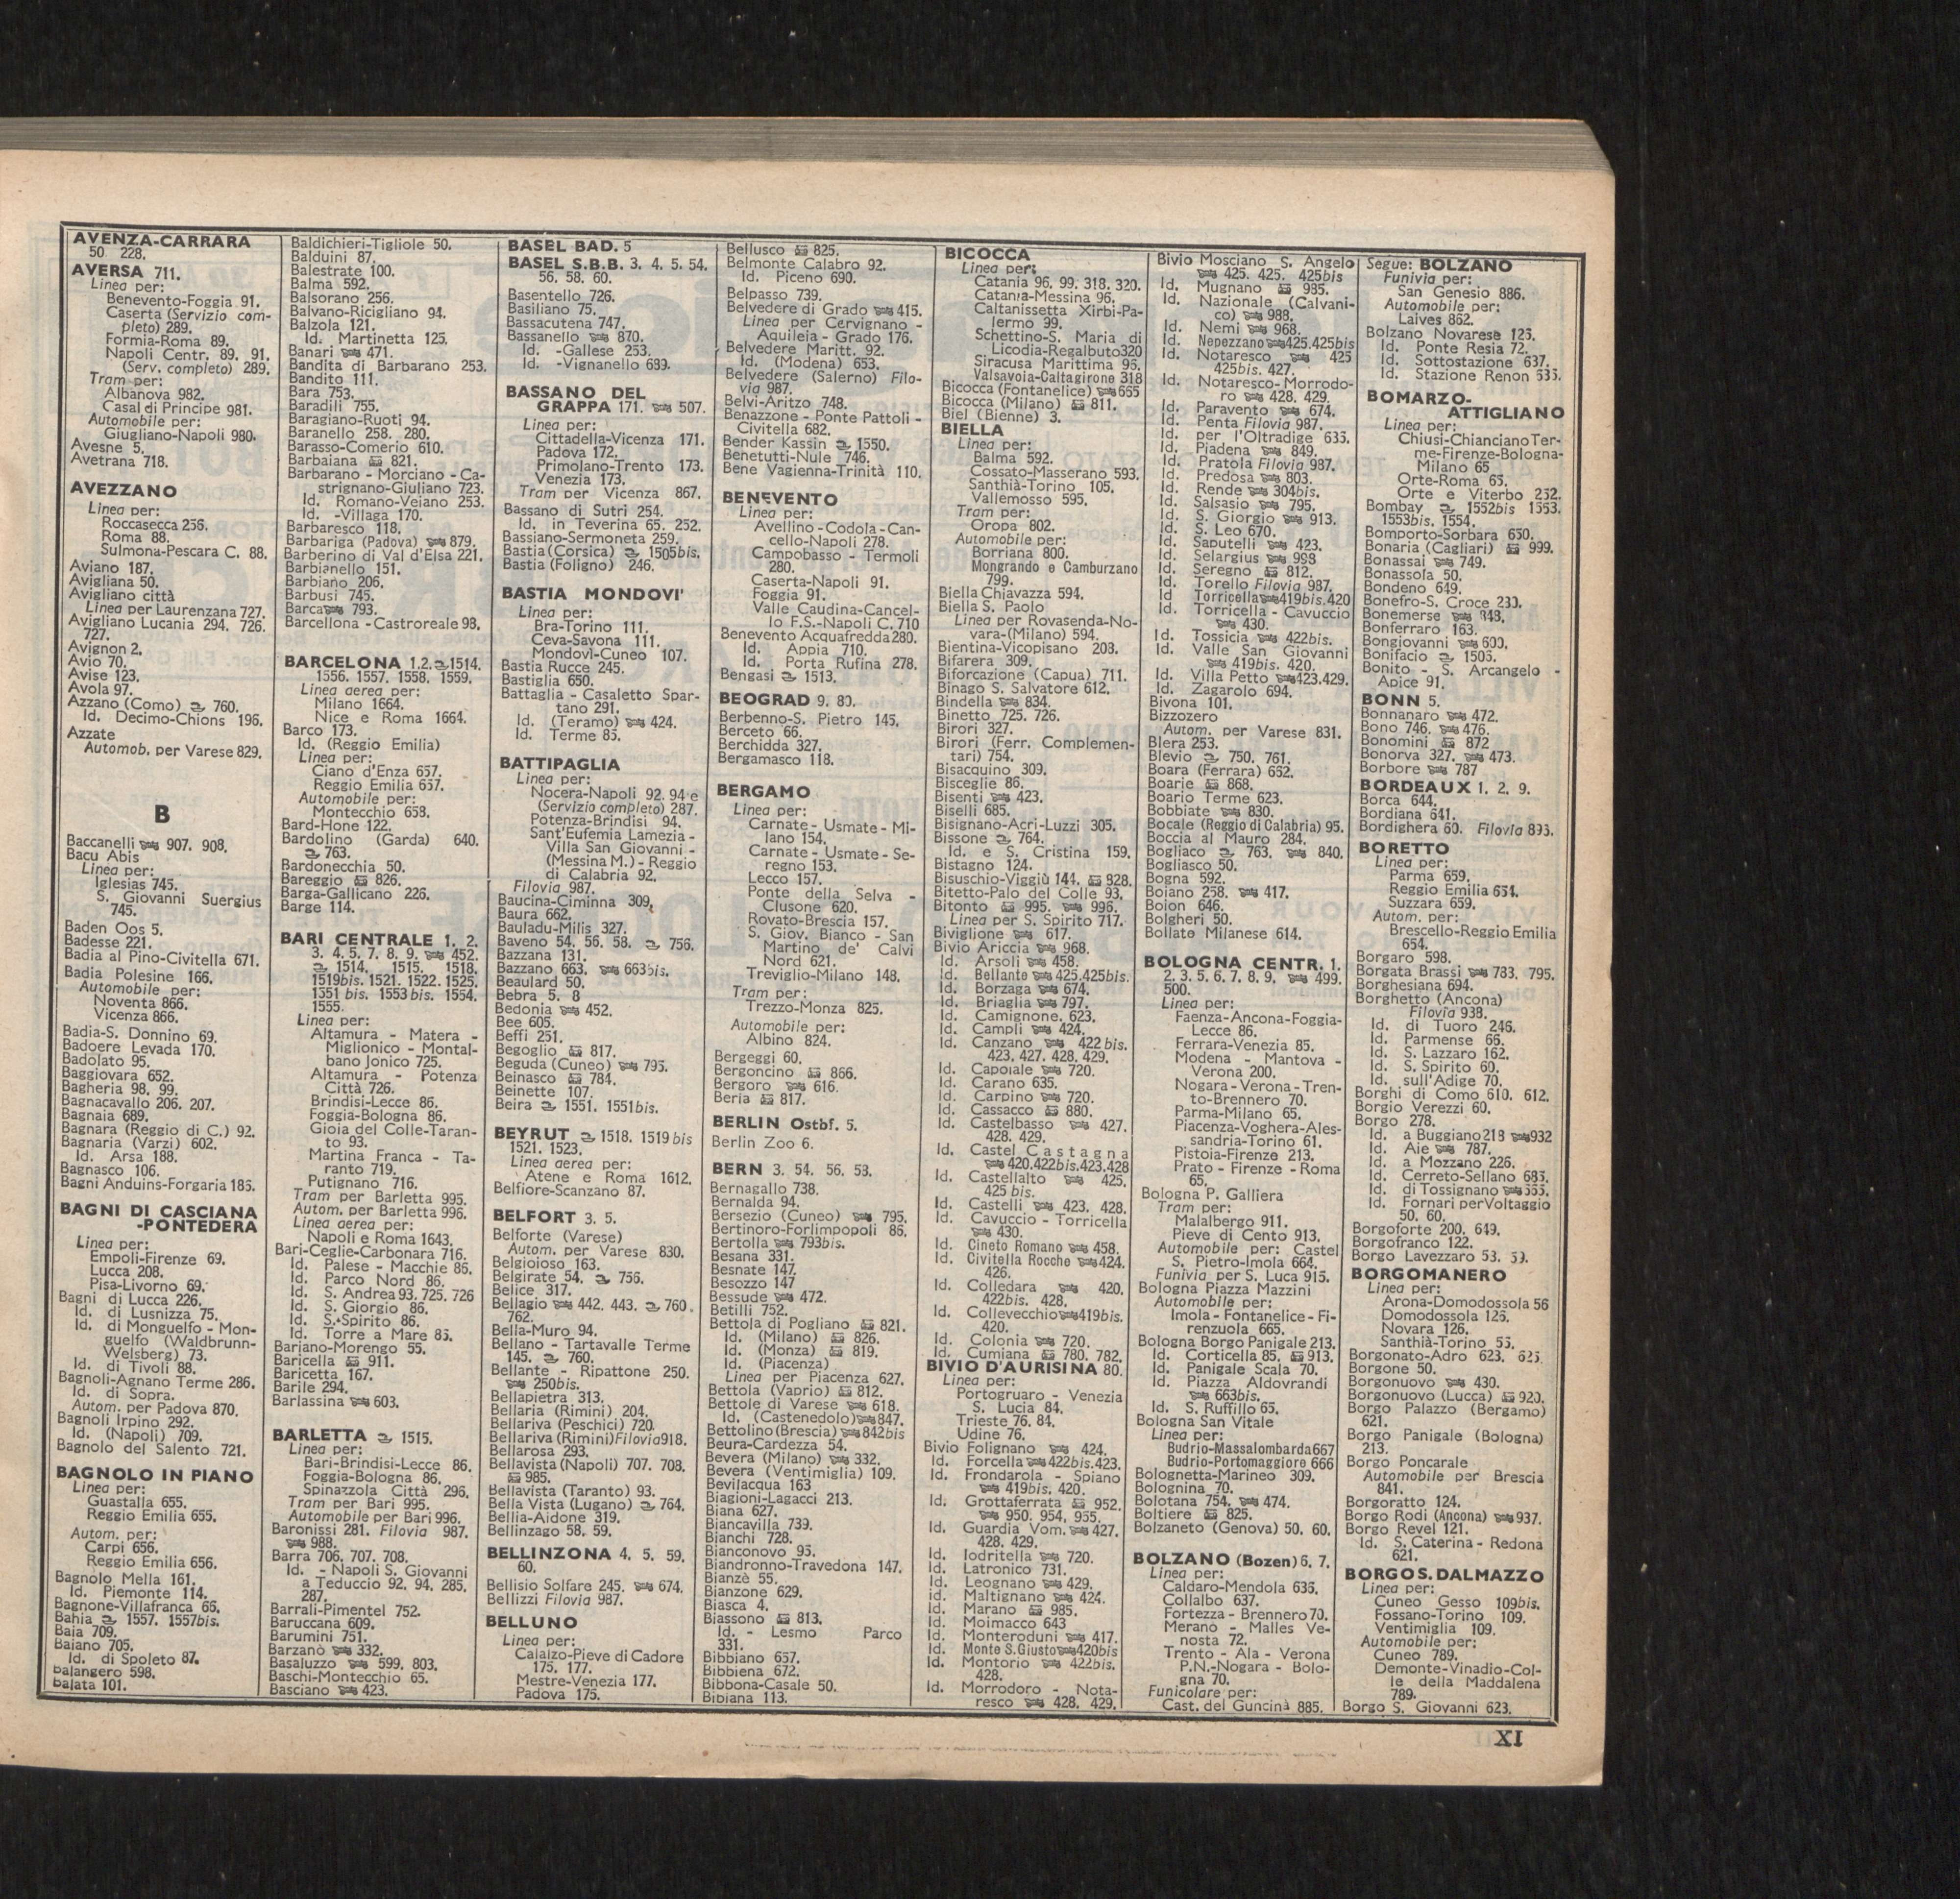 AVENZA-CARRARA
50. 228.
AVERSA 711.
Linea per:
Benevento-Foggia 91.
Caserta (Servizio com-
pleto) 289.
Formia-Roma 89.
Napoli Centr. 89. 91.
(Serv. completo) 289.
Tram per:
Albanova 982.
Casal di Principe 981.
Automobile per:
Giugliano-Napoli 980.
Avesne 5.
Avetrana 718.
AVEZZANO
Linea per:
Roccasecca 256.
Roma 88.
Sulmona-Pescara C. 88.
Aviano 187.
Avigliana 50.
Avigliano città
Linea per Laurenzana 727.
Avigliano Lucania 294. 726.
727.
Avignon 2.
Avio 70.
Avise 123.
Avola 97.
Azzano (Como) 760.
Id. Decimo-Chions 196.
Azzate
Automob. per Varese 829.
B
Baccanelli 907. 908.
Bacu Abis
Linea per:
Iglesias 745.
S. Giovanni Suergius
745.
Baden Oos 5.
Badesse 221.
Badia al Pino-Civitella 671.
Badia Polesine 166.
Automobile per:
Noventa 866.
Vicenza 866.
Badia-S. Donnino 69.
Badoere Levada 170.
Badolato 95.
Baggiovara 652.
Bagheria 98. 99.
Bagnacavallo 206. 207.
Bagnaia 689.
Bagnara (Reggio di C.) 92.
Bagnaria (Varzi) 602.
Id. Arsa 188.
Bagnasco 106.
Bagni Anduins-Forgaria 185.
BAGNI DI CASCIANA
-PONTEDERA
Linea per:
Empoli-Firenze 69.
Lucca 208.
Pisa-Livorno 69.
Bagni di Lucca 226.
Id. di Lusnizza 75.
Id. di Monguelfo - Mon-
guelfo (Waldbrunn-
Welsberg) 73.
Id. di Tivoli 88.
Bagnoli-Agnano Terme 286.
Id. di Sopra.
Autom. per Padova 870.
Bagnoli Irpino 292.
Id. (Napoli) 709.
Bagnolo del Salento 721.
BAGNOLO IN PIANO
Linea per:
Guastalla 655.
Reggio Emilia 655.
Autom. per:
Carpi 656.
Reggio Emilia 656.
Bagnolo Mella 161.
Id. Piemonte 114.
Bagnone-Villafranca 66.
Bahia 1557. 1557bis.
Baia 709.
Baiano 705.
Id. di Spoleto 87.
Balangero 598.
Balata 101.
Baldichieri-Tigliole 50.
Balduini 87.
Balestrate 100.
Balma 592.
Balsorano 256.
Balvano-Ricigliano 94.
Balzola 121.
Id. Martinetta 125.
Banari 471.
Bandita di Barbarano 253.
Bandito 111.
Bara 753.
Baradili 755.
Baragiano-Ruoti 94.
Baranello 258. 280.
Barasso-Comerio 610.
Barbaiana 821.
Barbarano - Morciano - Ca-
strignano-Giuliano 723.
Id. Romano-Veiano 253.
Id. -Villaga 170.
Barbaresco 118.
Barbariga (Padova) 879.
Barberino di Val d'Elsa 221.
Barbianello 151.
Barbiano 206.
Barbusi 745.
Barca 793.
Barcellona - Castroreale 98.
BARCELONA 1.2. 1514.
1556. 1557. 1558. 1559.
Linea aerea per:
Milano 1664.
Nice e Roma 1664.
Barco 173.
Id. (Reggio Emilia)
Linea per:
Ciano d'Enza 657.
Reggio Emilia 657.
Automobile per:
Montecchio 658.
Bard-Hone 122.
Bardolino (Garda) 640.
763.
Bardonecchia 50.
Bareggio 826.
Barga-Gallicano 226.
Barge 114.
BARI CENTRALE 1. 2.
3. 4. 5. 7. 8. 9. 452.
1514. 1515. 1518.
1519bis. 1521. 1522. 1525.
1551 bis. 1553 bis. 1554.
1555.
Linea per:
Altamura - Matera -
Miglionico - Montal-
bano Jonico 725.
Altamura - Potenza
Città 726.
Brindisi-Lecce 86.
Foggia-Bologna 86.
Gioia del Colle-Taran-
to 93.
Martina Franca - Ta-
ranto 719.
Putignano 716.
Tram per Barletta 995.
Autom. per Barletta 996.
Linea aerea per:
Napoli e Roma 1643.
Bari-Ceglie-Carbonara 716.
Id. Palese - Macchie 86.
Id. Parco Nord 86.
Id. S. Andrea 93. 725. 726
Id. S. Giorgio 86.
Id. S. Spirito 86.
Id. Torre a Mare 86.
Bariano-Morengo 55.
Baricella 911.
Baricetta 167.
Barile 294.
Barlassina 603.
BARLETTA 1515.
Linea per:
Bari-Brindisi-Lecce 86.
Foggia-Bologna 86.
Spinazzola Città 296.
Tram per Bari 995.
Automobile per Bari 996.
Baronissi 281. Filovia 987.
988.
Barra 706. 707. 708.
Id. - Napoli S. Giovanni
a Teduccio 92. 94. 285.
287.
Barrali-Pimentel 752.
Baruccana 609.
Barumini 751.
Barzanò 332.
Basaluzzo 599. 803.
Baschi-Montecchio 65.
Basciano 423.
BASEL BAD. 5
BASEL S.B.B. 3. 4. 5. 54.
56. 58. 60.
Basentello 726.
Basiliano 75.
Bassacutena 747.
Bassanello 870.
Id. -Gallese 253.
Id. -Vignanello 689.
BASSANO DEL
GRAPPA 171. 507.
Linea per:
Cittadella-Vicenza 171.
Padova 172.
Primolano-Trento 173.
Venezia 173.
Tram per Vicenza 867.
Bassano di Sutri 254.
Id. in Teverina 65. 252.
Bassiano-Sermoneta 259.
Bastia (Corsica) 1505bis.
Bastia (Foligno) 246.
BASTIA MONDOVI'
Linea per:
Bra-Torino 111.
Ceva-Savona 111.
Mondovì-Cuneo 107.
Bastia Rucce 245.
Bastiglia 650.
Battaglia - Casaletto Spar-
tano 291.
Id. (Teramo) 424.
Id. Terme 85.
BATTIPAGLIA
Linea per:
Nocera-Napoli 92. 94 e
(Servizio completo) 287.
Potenza-Brindisi 94.
Sant'Eufemia Lamezia -
Villa San Giovanni -
(Messina M.) - Reggio
di Calabria 92.
Filovia 987.
Baucina-Ciminna 309.
Baura 662.
Bauladu-Milis 327.
Baveno 54. 56. 58. 756.
Bazzana 131.
Bazzano 663. 663bis.
Beaulard 50.
Bebra 5. 8
Bedonia 452.
Bee 605.
Beffi 251.
Begoglio 817.
Beguda (Cuneo) 795.
Beinasco 784.
Beinette 107.
Beira 1551. 1551bis.
BEYRUT 1518. 1519 bis
1521. 1523.
Linea aerea per:
Atene e Roma 1612.
Belfiore-Scanzano 87.
BELFORT 3. 5.
Belforte (Varese)
Autom. per Varese 830.
Belgioioso 163.
Belgirate 54. 756.
Belice 317.
Bellagio 442. 443. 760.
762.
Bella-Muro 94.
Bellano - Tartavalle Terme
145. 760.
Bellante - Ripattone 250.
250bis.
Bellapietra 313.
Bellaria (Rimini) 204.
Bellariva (Peschici) 720.
Bellariva (Rimini) Filovia 918.
Bellarosa 293.
Bellavista (Napoli) 707. 708.
985.
Bellavista (Taranto) 93.
Bella Vista (Lugano) 764.
Bellia-Aidone 319.
Bellinzago 58. 59.
BELLINZONA 4. 5. 59.
60.
Bellisio Solfare 245. 674.
Bellizzi Filovia 987.
BELLUNO
Linea per:
Calalzo-Pieve di Cadore
175. 177.
Mestre-Venezia 177.
Padova 175.
Bellusco 825.
Belmonte Calabro 92.
Id. Piceno 690.
Belpasso 739.
Belvedere di Grado 415.
Linea per Cervignano -
Aquileia - Grado 176.
Belvedere Maritt. 92.
Id. (Modena) 653.
Belvedere (Salerno) Filo-
via 987.
Belvi-Aritzo 748.
Benazzone - Ponte Pattoli -
Civitella 682.
Bender Kassin 1550.
Benetutti-Nule 746.
Bene Vagienna-Trinità 110.
BENEVENTO
Linea per:
Avellino - Codola - Can-
cello-Napoli 278.
Campobasso - Termoli
280.
Caserta-Napoli 91.
Foggia 91.
Valle Caudina-Cancel-
lo F.S.-Napoli C. 710
Benevento Acquafredda 280.
Id. Appia 710.
Id. Porta Rufina 278.
Bengasi 1513.
BEOGRAD 9. 80.
Berbenno-S. Pietro 145.
Berceto 66.
Berchidda 327.
Bergamasco 118.
BERGAMO
Linea per:
Carnate - Usmate - Mi-
lano 154.
Carnate - Usmate - Se-
regno 153.
Lecco 157.
Ponte della Selva -
Clusone 620.
Rovato-Brescia 157.
S. Giov. Bianco - San
Martino de' Calvi
Nord 621.
Treviglio-Milano 148.
Tram per:
Trezzo-Monza 825.
Automobile per:
Albino 824.
Bergeggi 60.
Bergoncino 866.
Bergoro 616.
Beria 817.
BERLIN Ostbf. 5.
Berlin Zoo 6.
BERN 3. 54. 56. 58.
Bernagallo 738.
Bernalda 94.
Bersezio (Cuneo) 795.
Bertinoro-Forlimpopoli 86.
Bertolla 793bis.
Besana 331.
Besnate 147.
Besozzo 147
Bessude 472.
Betilli 752.
Bettola di Pogliano 821.
Id. (Milano) 826.
Id. (Monza) 819.
Id. (Piacenza)
Linea per Piacenza 627.
Bettola (Vaprio) 812.
Bettole di Varese 618.
Id. (Castenedolo) 847.
Bettolino (Brescia) 842bis
Beura-Cardezza 54.
Bevera (Milano) 332.
Bevera (Ventimiglia) 109.
Bevilacqua 163
Biagioni-Lagacci 213.
Biana 627.
Biancavilla 739.
Bianchi 728.
Bianconovo 95.
Biandronno-Travedona 147.
Bianzè 55.
Bianzone 629.
Biasca 4.
Biassono 813.
Id. - Lesmo Parco
331.
Bibbiano 657.
Bibbiena 672.
Bibbona-Casale 50.
Bibiana 113.
BICOCCA
Linea per:
Catania 96. 99. 318. 320.
Catania-Messina 96.
Caltanissetta Xirbi-Pa-
lermo 99.
Schettino-S. Maria di
Licodia-Regalbuto 320
Siracusa Marittima 96.
Valsavoia-Caltagirone 318
Bicocca (Fontanelice) 665
Bicocca (Milano) 811.
Biel (Bienne) 3.
BIELLA
Linea per:
Balma 592.
Cossato-Masserano 593.
Santhià-Torino 105.
Vallemosso 595.
Tram per:
Oropa 802.
Automobile per:
Borriana 800.
Mongrando e Camburzano
799.
Biella Chiavazza 594.
Biella S. Paolo
Linea per Rovasenda-No-
vara-(Milano) 594.
Bientina-Vicopisano 208.
Bifarera 309.
Biforcazione (Capua) 711.
Binago S. Salvatore 612.
Bindella 834.
Binetto 725. 726.
Birori 327.
Birori (Ferr. Complemen-
tari) 754.
Bisacquino 309.
Bisceglie 86.
Bisenti 423.
Biselli 685.
Bisignano-Acri-Luzzi 305.
Bissone 764.
Id. e S. Cristina 159.
Bistagno 124.
Bisuschio-Viggiù 144. 828.
Bitetto-Palo del Colle 93.
Bitonto 995. 996.
Linea per S. Spirito 717.
Biviglione 617.
Bivio Ariccia 968.
Id. Arsoli 458.
Id. Bellante 425. 425bis.
Id. Borzaga 674.
Id. Briaglia 797.
Id. Camignone. 623.
Id. Campli 424.
Id. Canzano 422 bis.
423. 427. 428. 429.
Id. Capoiale 720.
Id. Carano 635.
Id. Carpino 720.
Id. Cassacco 880.
Id. Castelbasso 427.
428. 429.
Id. Castel Castagna
420. 422bis. 423. 428
Id. Castellalto 425.
425 bis.
Id. Castelli 423. 428.
Id. Cavuccio - Torricella
430.
Id. Cineto Romano 458.
Id. Civitella Rocche 424.
426.
Id. Colledara 420.
422bis. 428.
Id. Collevecchio 419bis.
420.
Id. Colonia 720.
Id. Cumiana 780. 782.
BIVIO D'AURISINA 80.
Linea per:
Portogruaro - Venezia
S. Lucia 84.
Trieste 76. 84.
Udine 76.
Bivio Folignano 424.
Id. Forcella 422bis. 423.
Id. Frondarola - Spiano
419bis. 420.
Id. Grottaferrata 952.
950. 954. 955.
Id. Guardia Vom. 427.
428. 429.
Id. Iodritella 720.
Id. Latronico 731.
Id. Leognano 429.
Id. Maltignano 424.
Id. Marano 985.
Id. Moimacco 643
Id. Monteroduni 417.
Id. Monte S. Giusto 420bis
Id. Montorio 422bis.
428.
Id. Morrodoro - Nota-
resco 428. 429.
Bivio Mosciano S. Angelo
425. 425. 425bis
Id. Mugnano 985.
Id. Nazionale (Calvani-
co) 988.
Id. Nemi 968.
Id. Nepezzano 425. 425bis
Id. Notaresco 425
425bis. 427.
Id. Notaresco-Morrodo-
ro 428. 429.
Id. Paravento 674.
Id. Penta Filovia 987.
Id. per l'Oltradige 635.
Id. Piadena 849.
Id. Pratola Filovia 987.
Id. Predosa 803.
Id. Rende 304bis.
Id. Salsasio 795.
Id. S. Giorgio 913.
Id. S. Leo 670.
Id. Saputelli 423.
Id. Selargius 998
Id. Seregno 812.
Id. Torello Filovia 987.
Id Torricella 419bis. 420
Id. Torricella - Cavuccio
430.
Id. Tossicia 422bis.
Id. Valle San Giovanni
419bis. 420.
Id. Villa Petto 423. 429.
Id. Zagarolo 694.
Bivona 101.
Bizzozero
Autom. per Varese 831.
Blera 253.
Blevio 750. 761.
Boara (Ferrara) 662.
Boarie 868.
Boario Terme 623.
Bobbiate 830.
Bocale (Reggio di Calabria) 95.
Boccia al Mauro 284.
Bogliaco 763. 840.
Bogliasco 50.
Bogna 592.
Boiano 258. 417.
Boion 646.
Bolgheri 50.
Bollate Milanese 614.
BOLOGNA CENTR. 1.
2. 3. 5. 6. 7. 8. 9. 499.
500.
Linea per:
Faenza-Ancona-Foggia-
Lecce 86.
Ferrara-Venezia 85.
Modena - Mantova -
Verona 200.
Nogara - Verona - Tren-
to-Brennero 70.
Parma-Milano 65.
Piacenza-Voghera-Ales-
sandria-Torino 61.
Pistoia-Firenze 213.
Prato - Firenze - Roma
65.
Bologna P. Galliera
Tram per:
Malalbergo 911.
Pieve di Cento 913.
Automobile per: Castel
S. Pietro-Imola 664.
Funivia per S. Luca 915.
Bologna Piazza Mazzini
Automobile per:
Imola - Fontanelice - Fi-
renzuola 665.
Bologna Borgo Panigale 213.
Id. Corticella 85. 913.
Id. Panigale Scala 70.
Id. Piazza Aldovrandi
663bis.
Id. S. Ruffillo 65.
Bologna San Vitale
Linea per:
Budrio-Massalombarda 667
Budrio-Portomaggiore 666
Bolognetta-Marineo 309.
Bolognina 70.
Bolotana 754. 474.
Boltiere 825.
Bolzaneto (Genova) 50. 60.
BOLZANO (Bozen) 6. 7.
Linea per:
Caldaro-Mendola 635.
Collalbo 637.
Fortezza - Brennero 70.
Merano - Malles Ve-
nosta 72.
Trento - Ala - Verona
P.N.-Nogara - Bolo-
gna 70.
Funicolare per:
Cast. del Guncinà 885.
Segue: BOLZANO
Funivia per:
San Genesio 886.
Automobile per:
Laives 862.
Bolzano Novarese 125.
Id. Ponte Resia 72.
Id. Sottostazione 637.
Id. Stazione Renon 635.
BOMARZO-
ATTIGLIANO
Linea per:
Chiusi-Chianciano Ter-
me-Firenze-Bologna-
Milano 65
Orte-Roma 65.
Orte e Viterbo 252.
Bombay 1552bis 1553.
1553bis. 1554.
Bomporto-Sorbara 650.
Bonaria (Cagliari) 999.
Bonassai 749.
Bonassola 50.
Bondeno 649.
Bonefro-S. Croce 280.
Bonemerse 848.
Bonferraro 163.
Bongiovanni 600.
Bonifacio 1505.
Bonito - S. Arcangelo -
Apice 91.
BONN 5.
Bonnanaro 472.
Bono 746. 476.
Bonomini 872
Bonorva 327. 473.
Borbore 787
BORDEAUX 1. 2. 9.
Borca 644.
Bordiana 641.
Bordighera 60. Filovia 893.
BORETTO
Linea per:
Parma 659.
Reggio Emilia 654.
Suzzara 659.
Autom. per:
Brescello-Reggio Emilia
654.
Borgaro 598.
Borgata Brassi 783. 795.
Borghesiana 694.
Borghetto (Ancona)
Filovia 938.
Id. di Tuoro 246.
Id. Parmense 66.
Id. S. Lazzaro 162.
Id. S. Spirito 60.
Id. sull'Adige 70.
Borghi di Como 610. 612.
Borgio Verezzi 60.
Borgo 278.
Id. a Buggiano 213 932
Id. Aie 787.
Id. a Mozzano 226.
Id. Cerreto-Sellano 685.
Id. di Tossignano 665.
Id. Fornari per Voltaggio
50. 60.
Borgoforte 200. 649.
Borgofranco 122.
Borgo Lavezzaro 53. 59.
BORGOMANERO
Linea per:
Arona-Domodossola 56
Domodossola 126.
Novara 126.
Santhià-Torino 56.
Borgonato-Adro 623. 625.
Borgone 50.
Borgonuovo 430.
Borgonuovo (Lucca) 920.
Borgo Palazzo (Bergamo)
621.
Borgo Panigale (Bologna)
213.
Borgo Poncarale
Automobile per Brescia
841.
Borgoratto 124.
Borgo Rodi (Ancona) 937.
Borgo Revel 121.
Id. S. Caterina - Redona
621.
BORGO S. DALMAZZO
Linea per:
Cuneo Gesso 109bis.
Fossano-Torino 109.
Ventimiglia 109.
Automobile per:
Cuneo 789.
Demonte-Vinadio-Col-
le della Maddalena
789.
Borgo S. Giovanni 623.
XI